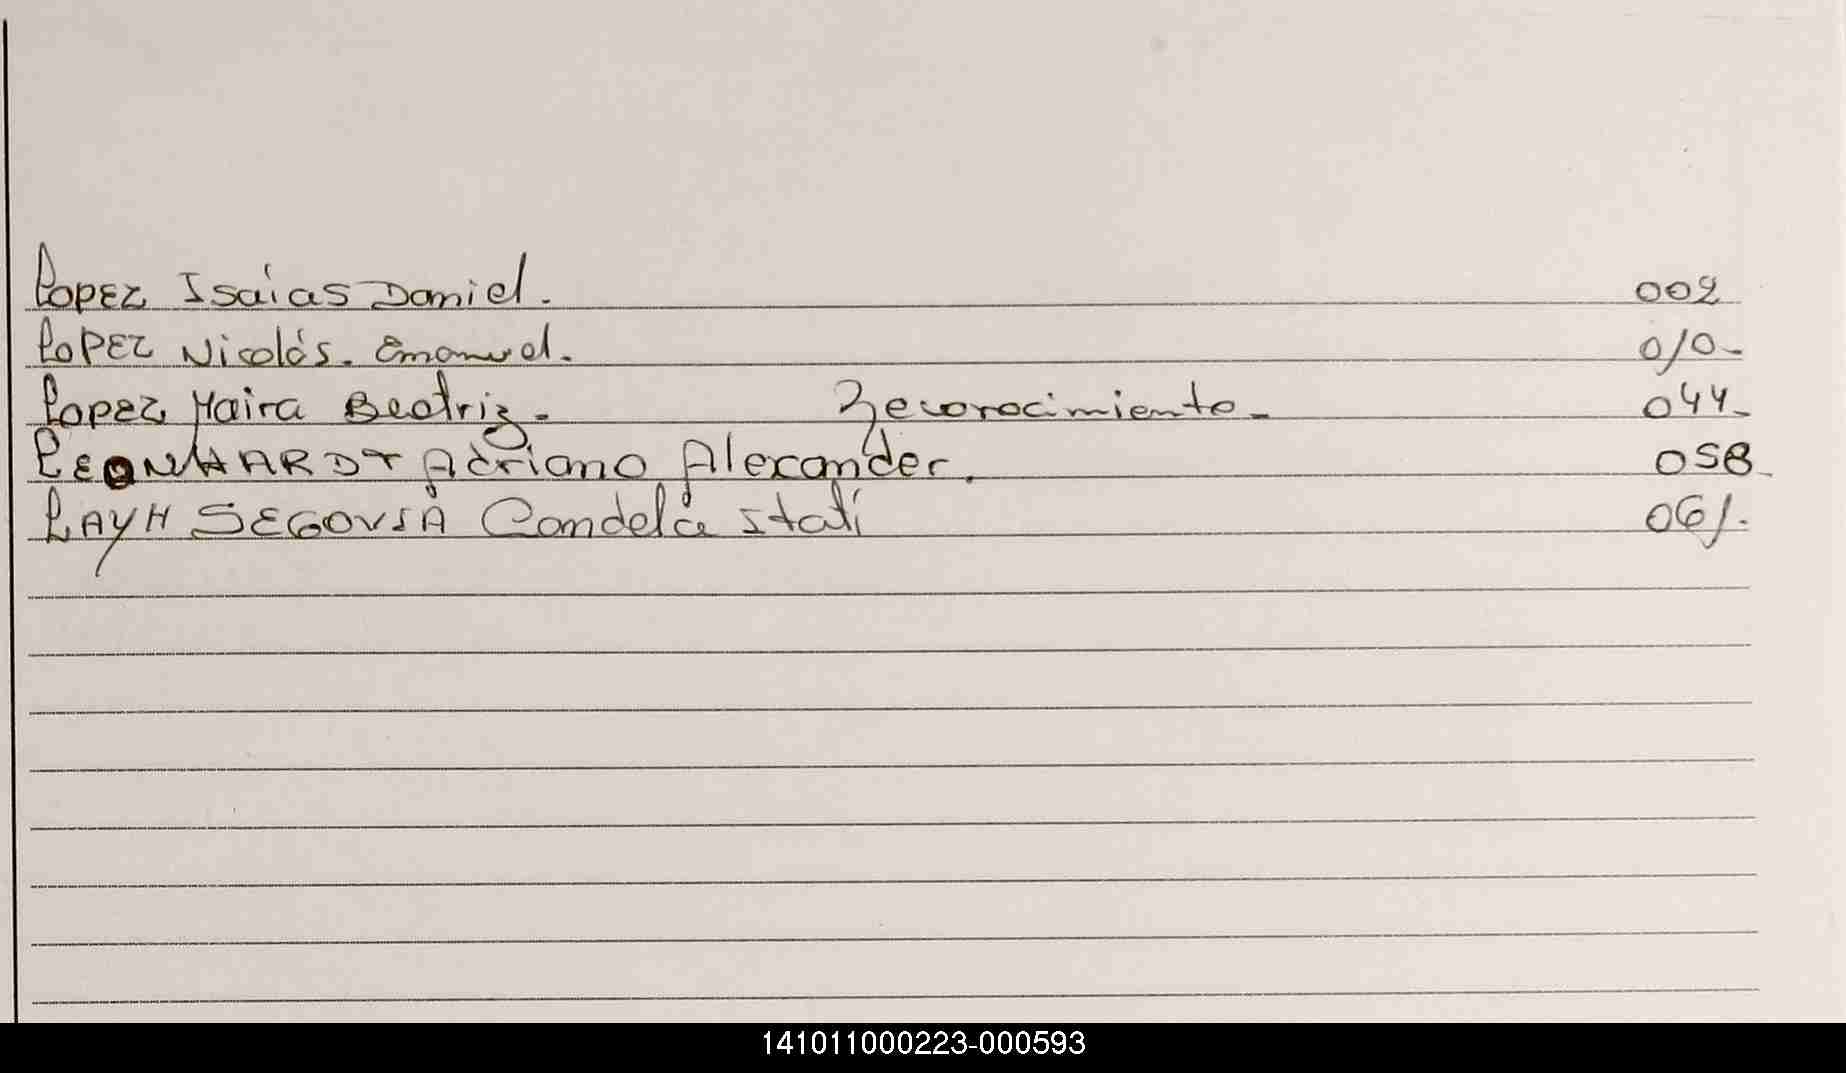 Lopez Isaías Daniel. 002
Lopez Nicolás. Emanuel. 010-
Lopez Maira Beatriz. Reconocimiento- 044-
LEONHARDT Adriano Alexander. 058-
LAYH SEGOVIA Candela Itatí 061.
141011000223-000593